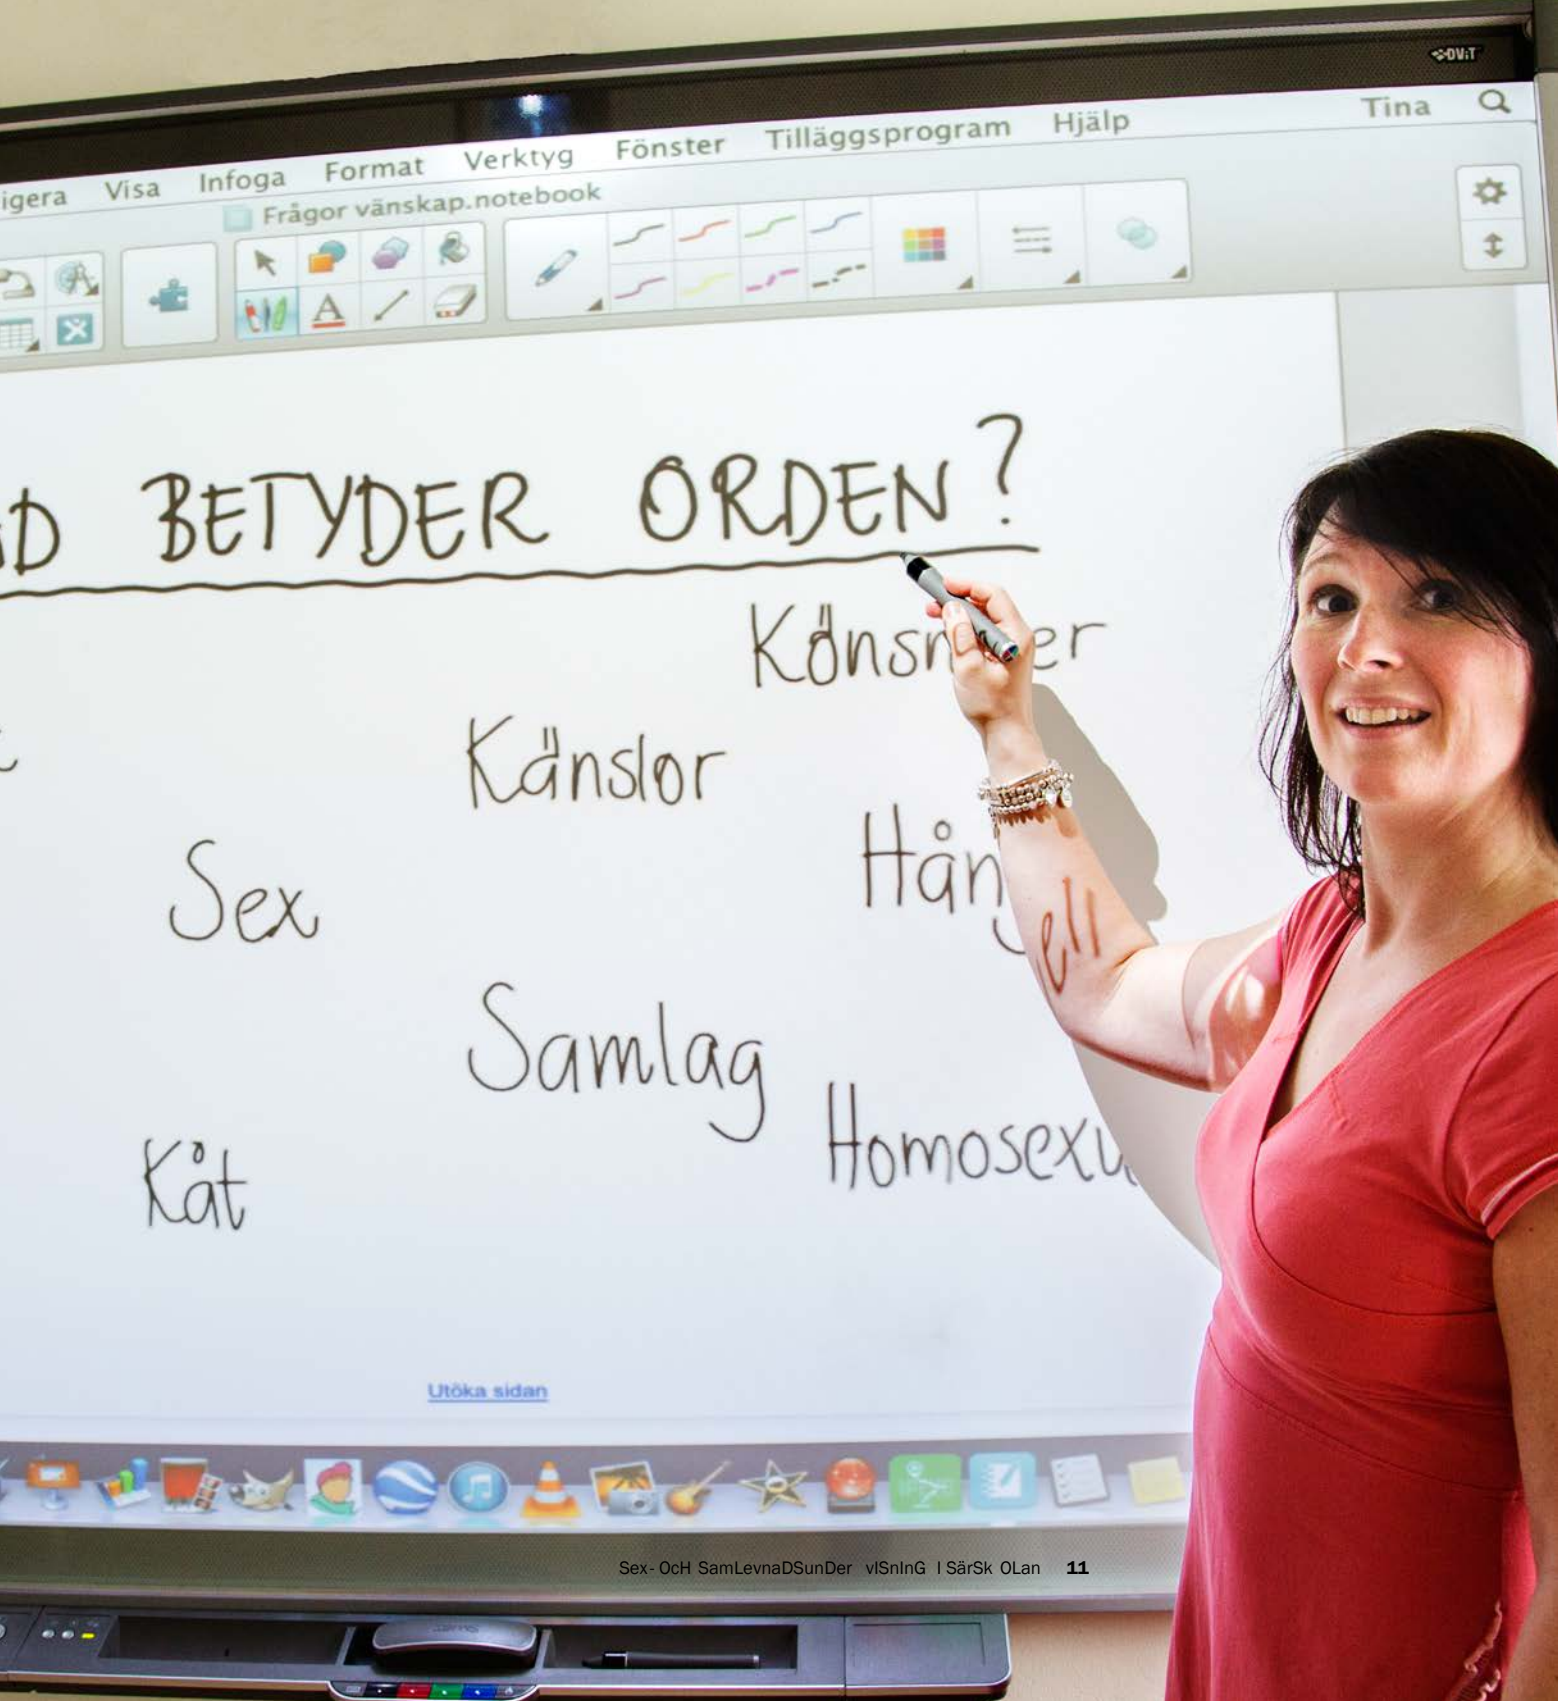 DViT
igera Visa Infoga Format Verktyg Fönster Tilläggsprogram Hjälp Tina
Frågor vänskap.notebook
D BETYDER ORDEN?
Känslor
Sex
Hån
ell
Samlag
Homosexu
Kåt
Utöka sidan
Sex- OcH SamLevnaDSunDer vISnInG I SärSk OLan 11